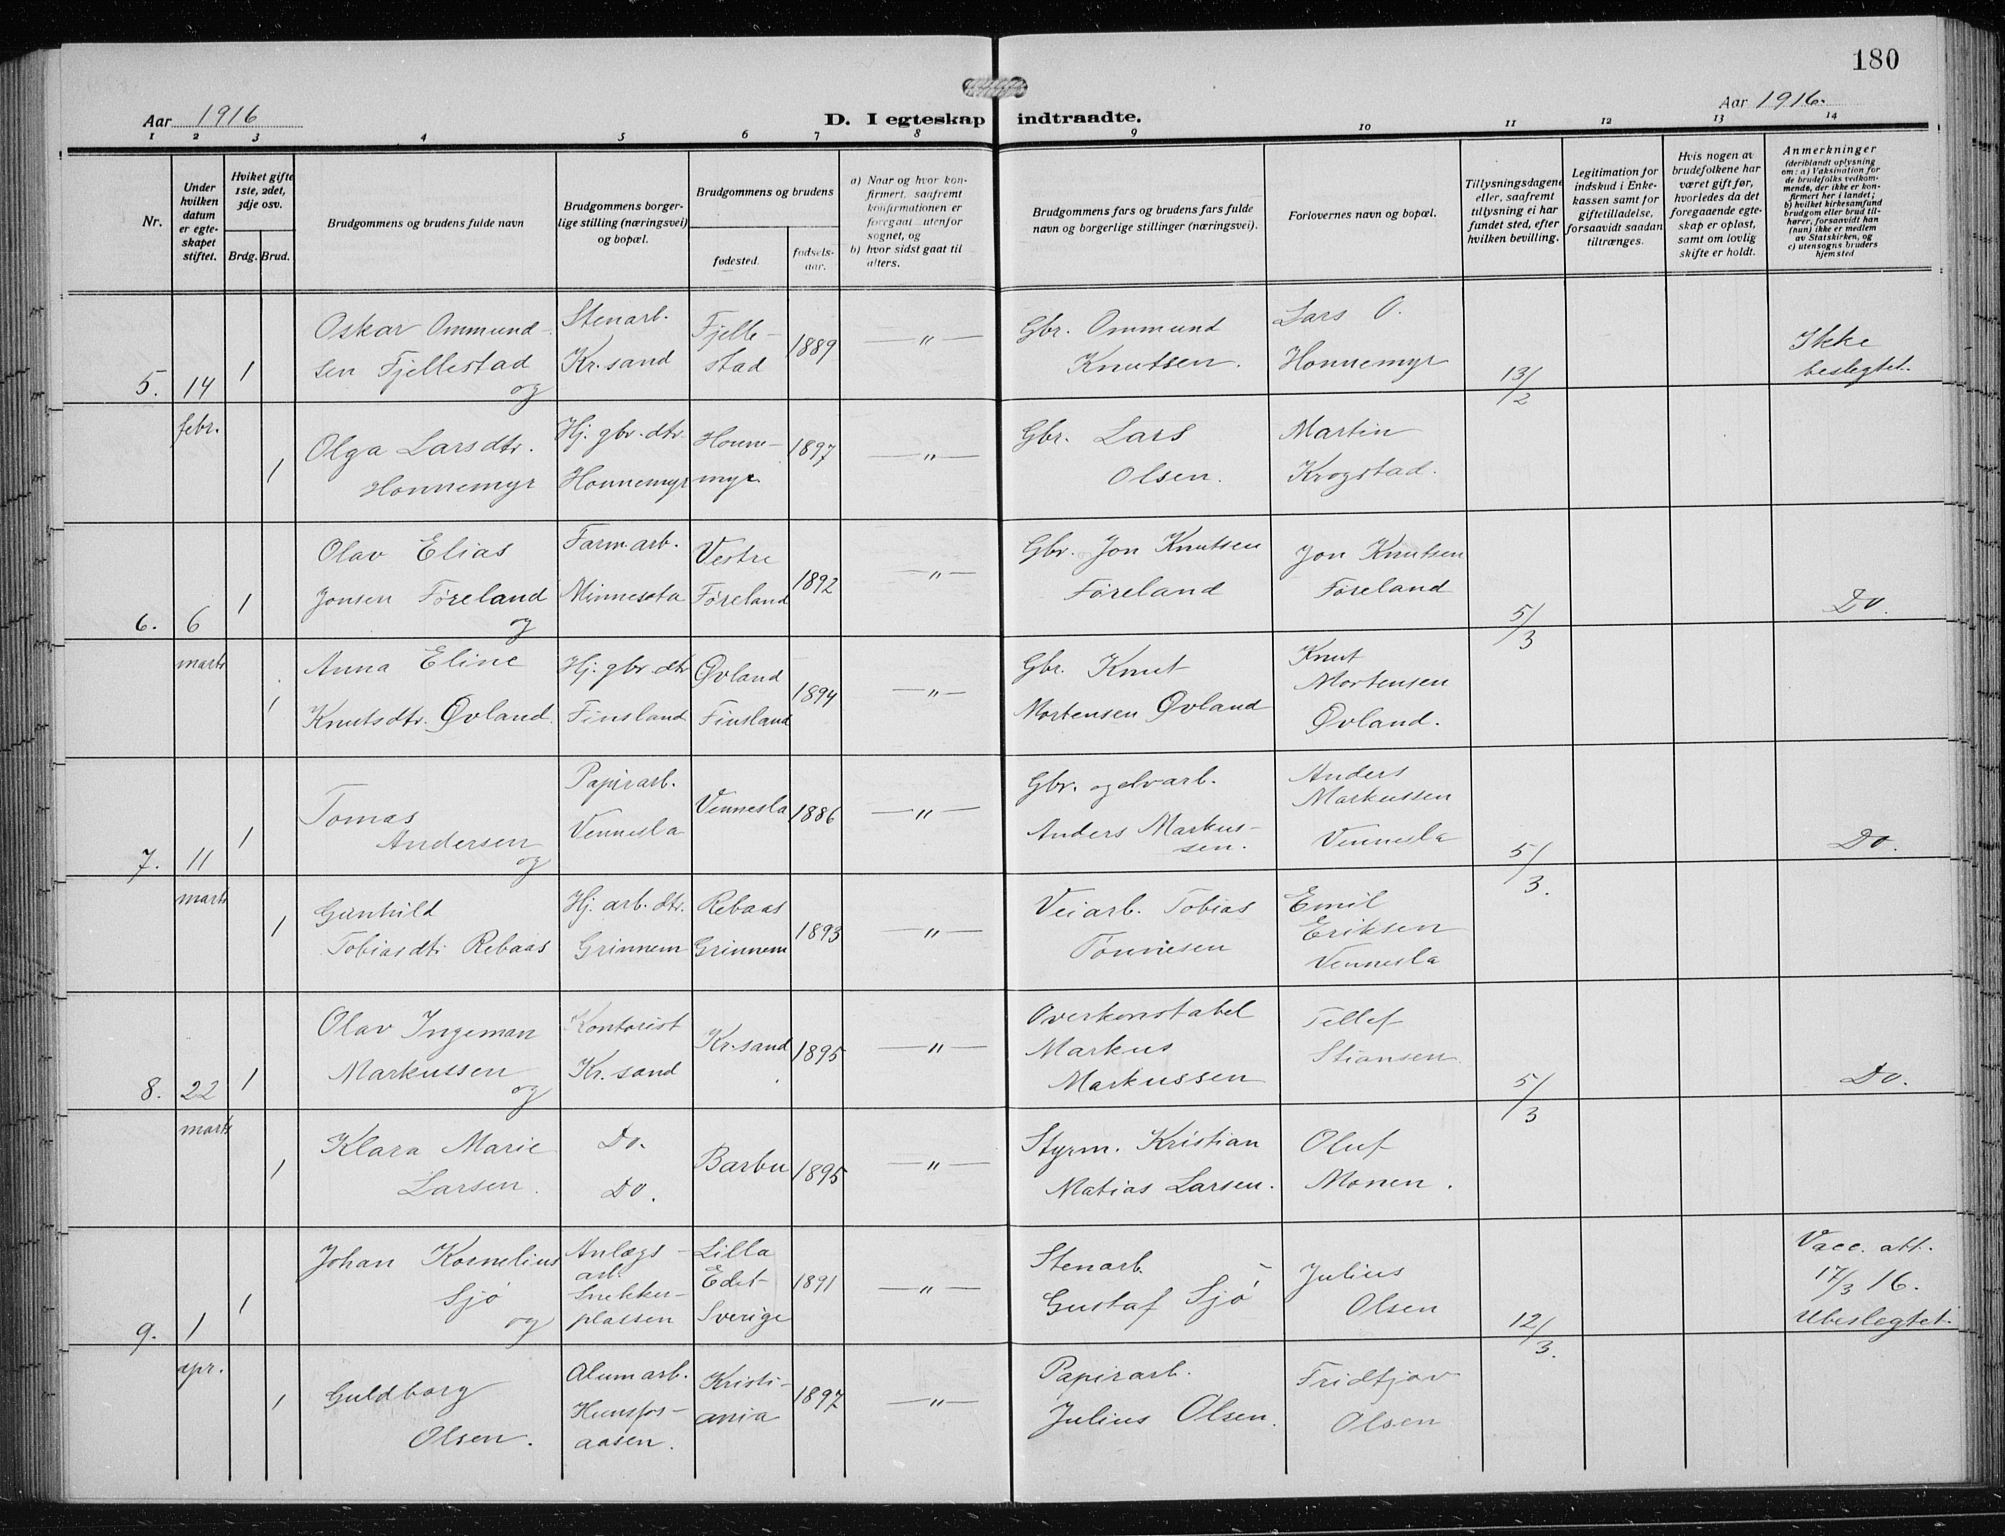 180
Aar 1916
D. I egteskap indtraadte.
Aar 1916.
1 2 3 4 5 6 7 8 9 10 11 12 13 14
Nr.
Under hvilken datum er egteskapet stiftet.
Hviket gifte 1ste, 2det, 3dje osv.
Brdg. Brud.
Brudgommens og brudens fulde navn
Brudgommens borgerlige stilling (næringsvei) og bopæl.
Brudgommens og brudens
fødested.
fødselsaar.
a) Naar og hvor konfirmert, saafremt konfirmationen er foregaat utenfor sognet, og
b) hvor sidst gaat til alters.
Brudgommens fars og brudens fars fulde navn og borgerlige stillinger (næringsvei).
Forlovernes navn og bopæl.
Tillysningsdagene eller, saafremt tillysning ei har fundet sted, efter hvilken bevilling.
Legitimation for indskud i Enkekassen samt for giftetilladelse, forsaavidt saadan tiltrænges.
Hvis nogen av brudefolkene har været gift før, hvorledes da det foregaaende egteskap er opløst, samt om lovlig skifte er holdt.
Anmerkninger
(deriblandt oplysning om: a) Vaksination for de brudefolks vedkommende, der ikke er konfirmert her i landet;
b) hvilket kirkesamfund brudgom eller brud tilhører, forsaavidt han (hun) ikke er medlem av Statskirken, og
c) utensogns bruders hjemsted
5. 14 febr. 1
Oskar Ommund-
sen Fjellestad
og
Stenarb.
Kr.sand
Fjelle-
stad
1889
— " —
Gbr. Ommund
Knutsen.
Lars O.
Honnemyr
13/2
Ikke
beslegtet.
1
Olga Larsdtr.
Honnemyr
Hj. gbr. dtr.
Honnemyr
Honne-
myr
1897
— " —
Gbr. Lars
Olsen.
Martin
Krogstad.
6. 6 marts 1
Olav Elias
Jonsen Føreland
og
Farm.arb.
Minnesota
Vestre
Føreland
1892
— " —
Gbr. Jon Knutsen
Føreland
Jon Knutsen
Føreland
5/3
Do.
1
Anna Eline
Knutsdtr. Øvland
Hj. gbr. dtr.
Finsland
Øvland
Finsland
1894
— " —
Gbr. Knut
Mortensen Øvland
Knut
Mortensen
Øvland.
7. 11 marts 1
Tomas
Andersen
og
Papirarb.
Vennesla
Vennesla
1886
— " —
Gbr. og elvarb.
Anders Markus-
sen.
Anders
Markussen
Vennesla
5/3.
Do.
1
Gunhild
Tobiasdtr. Rebaas
Hj. arb. dtr.
Grinnem
Rebaas
Grinnem
1893
— " —
Veiarb. Tobias
Tønnesen
Emil
Eriksen
Vennesla
8. 22 marts 1
Olav Ingeman
Markussen
og
Kontorist
Kr. sand
Kr.sand
1895
— " —
Overkonstabel
Markus
Markussen
Tellef
Stiansen
5/3
Do.
1
Klara Marie
Larsen.
Do.
Do.
Barbu
1895
— " —
Styrm. Kristian
Matias Larsen.
Oluf
Monen.
9. 1 apr. 1
Johan Kornelius
Sjö
og
Anlægs-
arb.
Snekker-
plassen
Lilla
Edet
Sverige
1891
— " —
Stenarb.
Gustaf Sjö
Julius
Olsen
12/3.
Vacc. att.
17/3 16.
Ubeslegtet.
1
Guldborg
Olsen.
Alum arb.
Hunsfos-
aasen.
Kristi-
ania
1897
— " —
Papirarb.
Julius Olsen.
Fridtjov
Olsen